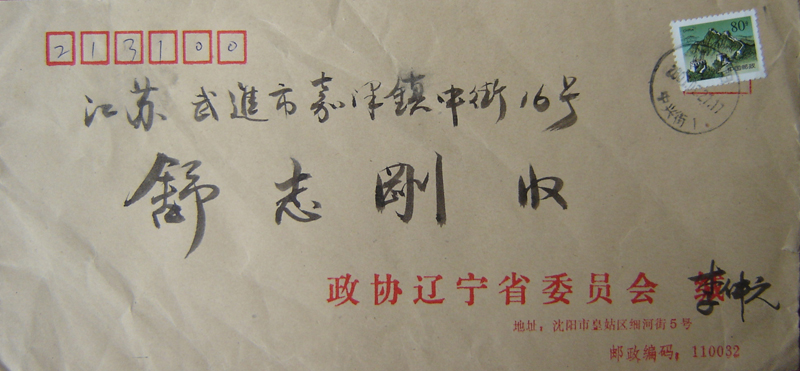 213100
80分
中国邮政
江苏 武進市嘉泽鎮中街16号
舒志剛 收
政协辽宁省委员会 李仲元
地址：沈阳市皇姑区细河街5号
邮政编码：110032